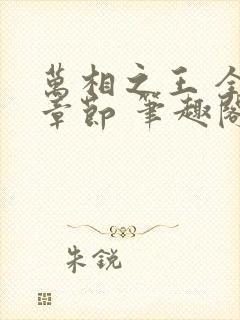 萬相之王 全
章節 筆趣閣
朱銳